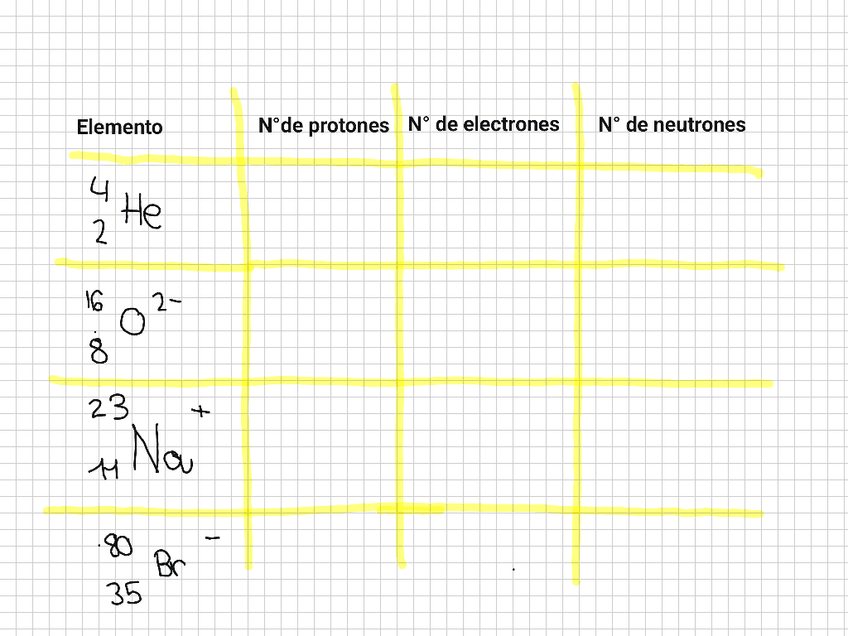 Elemento N°de protones N° de electrones N° de neutrones
4
2 He
16
8 O 2-
23 +
11 Na
80 -
35 Br